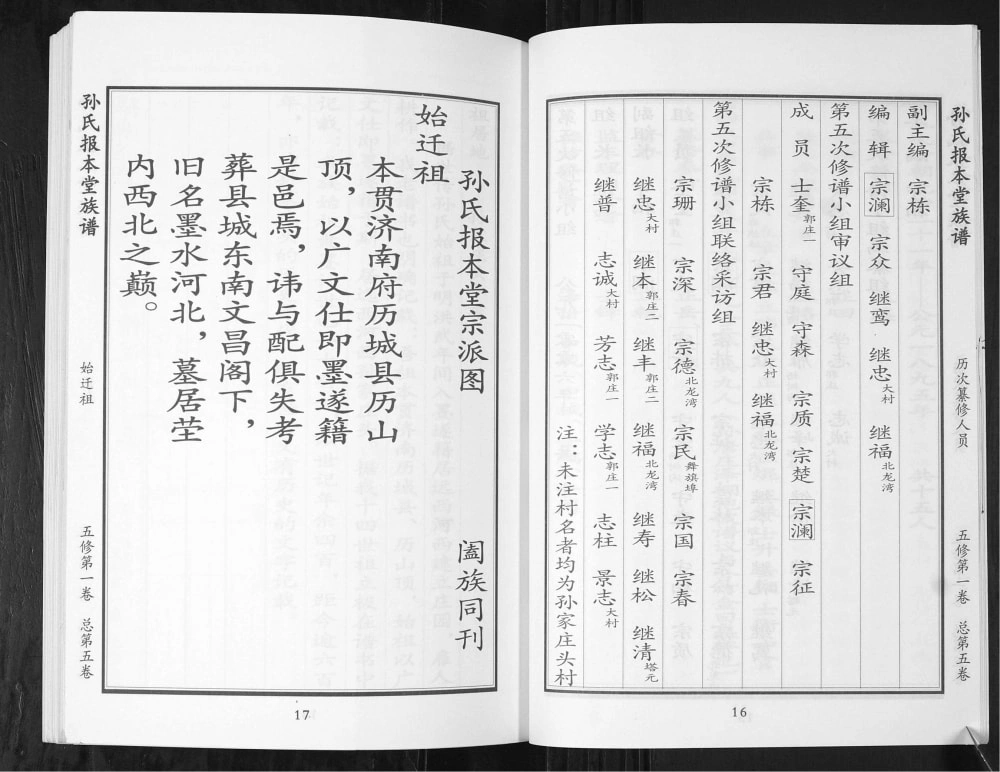 孙氏报本堂族谱
历次纂修人员
五修第一卷 总第五卷
副主编 宗栋
编辑 宗澜 宗众 继鸾 继忠大村 继福北龙湾
第五次修谱小组审议组
成员 士奎郭庄一 守庭 守森 宗质 宗楚 宗澜 宗征
宗栋 宗君 继忠大村 继福北龙湾
第五次修谱小组联络采访组
宗珊 宗深 宗德北龙湾 宗民舞旗埠 宗国 宗春
继忠大村 继本郭庄二 继丰郭庄二 继福北龙湾 继寿 继松 继清塔元
继普 志诚大村 芳志郭庄一 学志郭庄一 志柱 景志大村
注：未注村名者均为孙家庄头村
16
孙氏报本堂宗派图 阖族同刊
始迁祖
本贯济南府历城县历山
顶，以广文仕即墨遂籍
是邑焉，讳与配俱失考
葬县城东南文昌阁下，
旧名墨水河北，墓居茔
内西北之巅。
孙氏报本堂族谱
始迁祖
五修第一卷 总第五卷
17